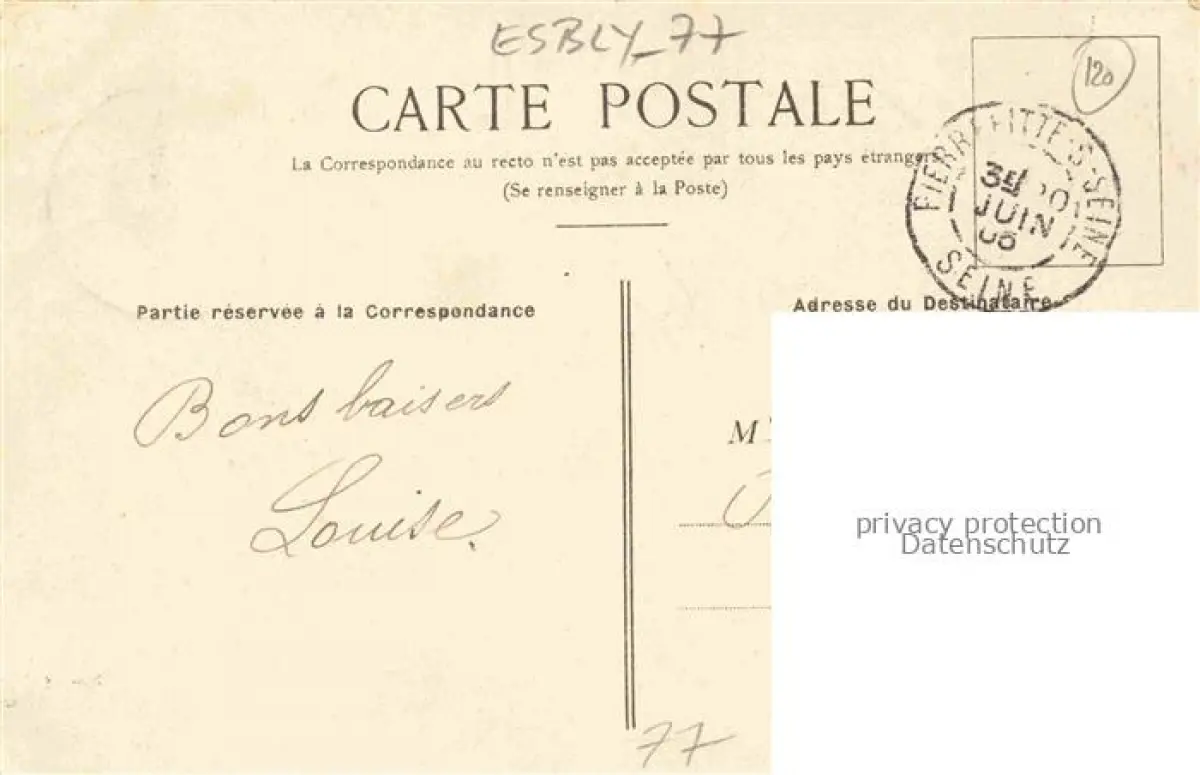 ESBLY_77
120
CARTE POSTALE
La Correspondance au recto n'est pas acceptée par tous les pays étrangers
(Se renseigner à la Poste)
PIERREFITTE-S-SEINE
JUIN
06
SEINE
Partie réservée à la Correspondance
Adresse du Destinataire
Bons baisers
Louise.
M
privacy protection
Datenschutz
77